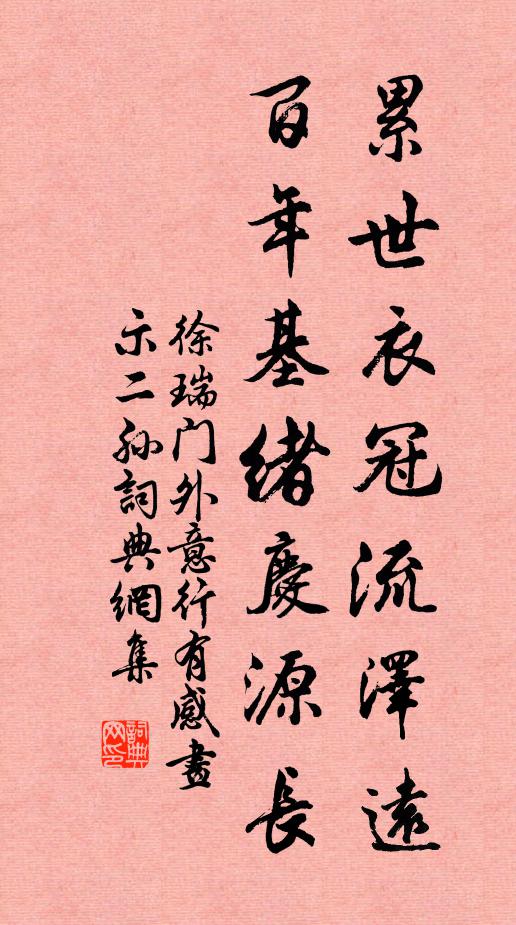 累世衣冠流澤遠
百年基緒慶源長
徐瑞门外意行有感畫
示二孙詞典網集
詞典网印